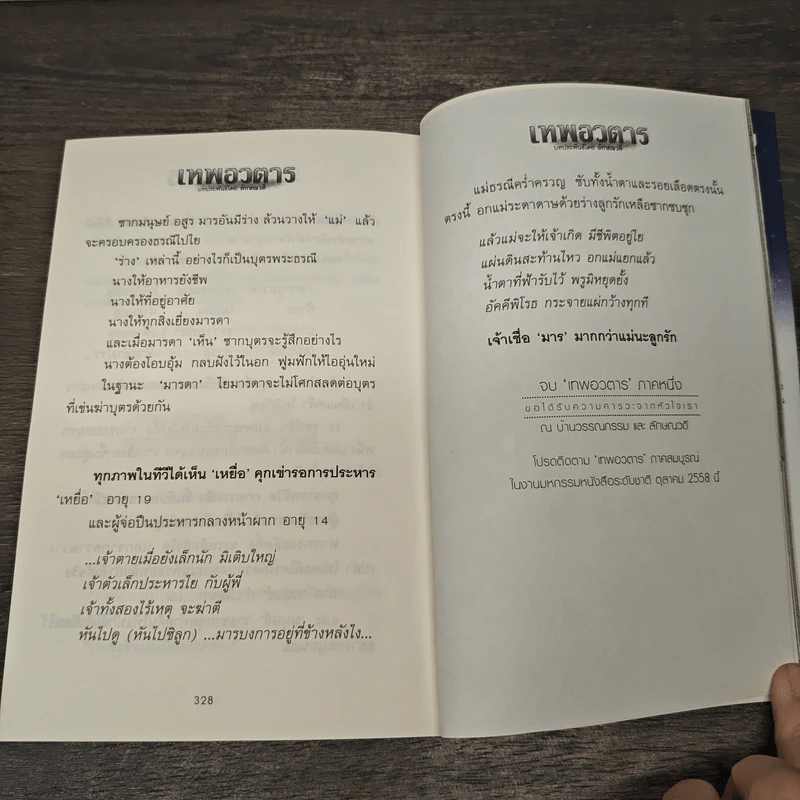 เทพอวตาร
บทประพันธ์โดย ลักษณวดี
ซากมนุษย์ อสูร มารอันมีร่าง ล้วนวางให้ ‘แม่’ แล้ว
จะครอบครองธรณีไปไย
‘ร่าง’ เหล่านี้ อย่างไรก็เป็นบุตรพระธรณี
นางให้อาหารยังชีพ
นางให้ที่อยู่อาศัย
นางให้ทุกสิ่งเยี่ยงมารดา
และเมื่อมารดา ‘เห็น’ ซากบุตรจะรู้สึกอย่างไร
นางต้องโอบอุ้ม กลบฝังไว้ในอก ฟูมฟักให้ไออุ่นใหม่
ในฐานะ ‘มารดา’ ไยมารดาจะไม่โศกสลดต่อบุตร
ที่เข่นฆ่าบุตรด้วยกัน
ทุกภาพในทีวีได้เห็น ‘เหยื่อ’ คุกเข่ารอการประหาร
‘เหยื่อ’ อายุ 19
และผู้จ่อปืนประหารกลางหน้าผาก อายุ 14
...เจ้าตายเมื่อยังเล็กนัก มิเติบใหญ่
เจ้าตัวเล็กประหารไย กับผู้พี่
เจ้าทั้งสองไร้เหตุ จะฆ่าตี
หันไปดู (หันไปซิลูก) ...มารบงการอยู่ที่ข้างหลังไง...
328
เทพอวตาร
บทประพันธ์โดย ลักษณวดี
แม่ธรณีคร่ำครวญ ซับทั้งน้ำตาและรอยเลือดตรงนั้น
ตรงนี้ อกแม่ระดาดาษด้วยร่างลูกรักเหลือซากซบซุก
แล้วแม่จะให้เจ้าเกิด มีชีพิตอยู่ไย
แผ่นดินสะท้านไหว อกแม่แยกแล้ว
น้ำตาที่ฟ้ารับไว้ พรูมิหยุดยั้ง
อัคคีพิโรธ กระจายแผ่กว้างทุกที
เจ้าเชื่อ ‘มาร’ มากกว่าแม่นะลูกรัก
จบ ‘เทพอวตาร’ ภาคหนึ่ง
ขอได้รับความคารวะจากหัวใจเรา
ณ บ้านวรรณกรรม และ ลักษณวดี
โปรดติดตาม ‘เทพอวตาร’ ภาคสมบูรณ์
ในงานมหกรรมหนังสือระดับชาติ ตุลาคม 2558 นี้